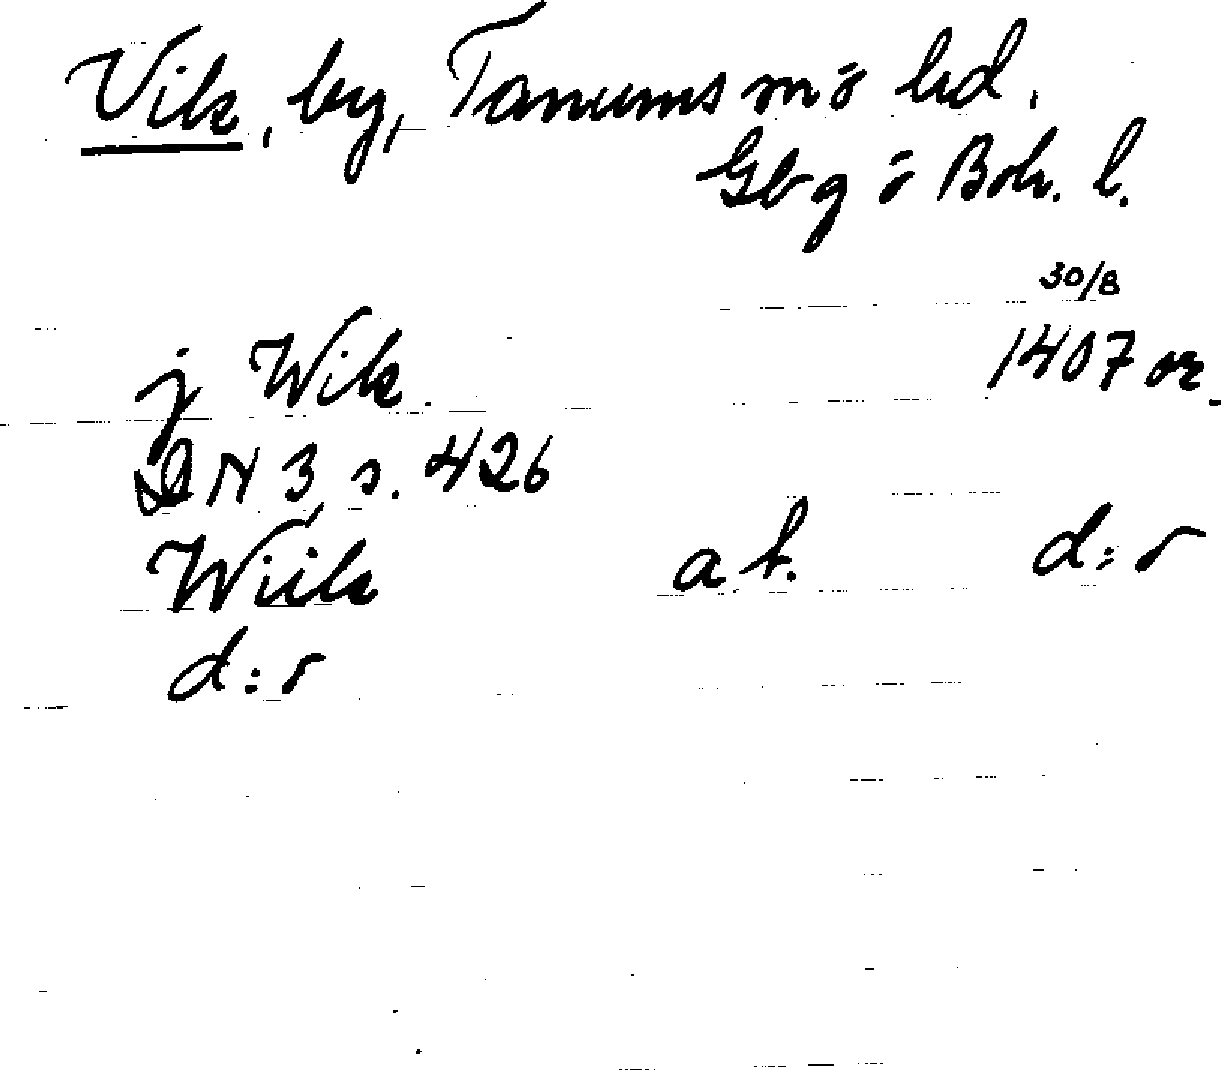 Vik, by, Tanums sn o hd.
Gbg o Boh. l.
30/8
j Wik. 1407 or.
DN 3 s. 426
Wiik a t. d:o
d:o